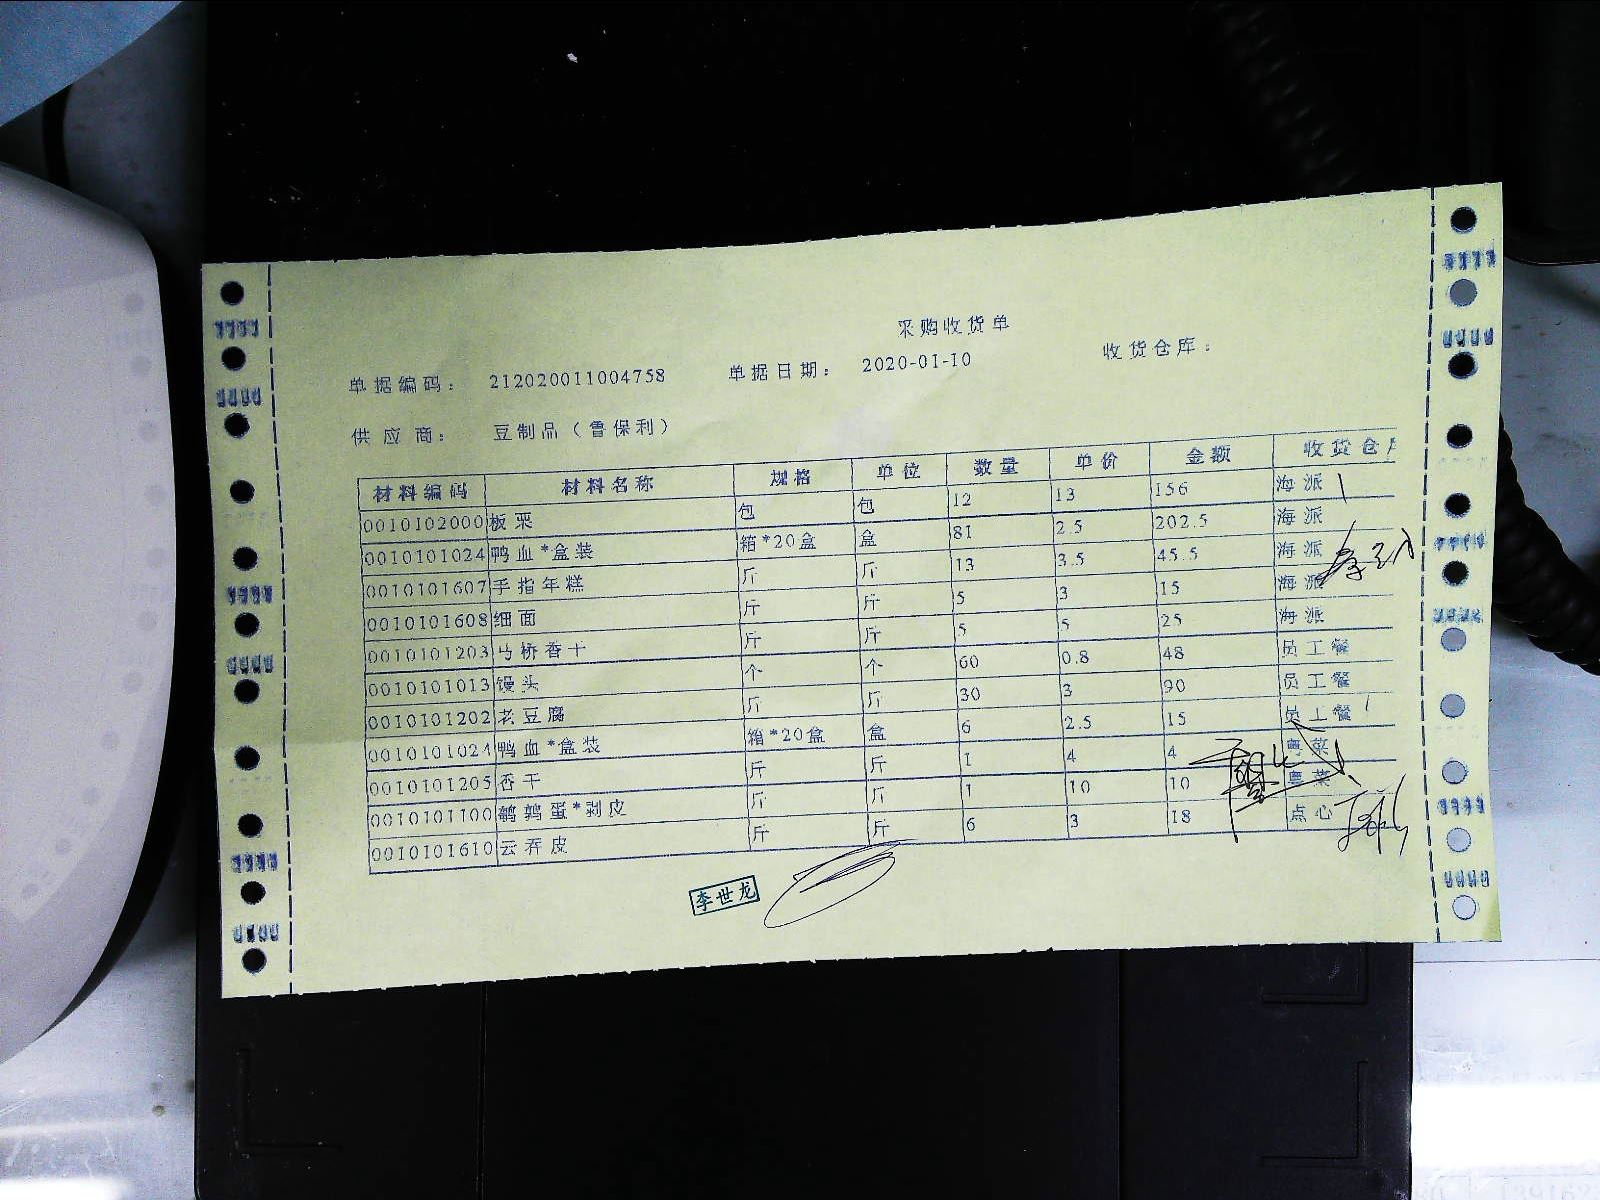 采购收货单
单据编码： 212020011004758 单据日期： 2020-01-10 收货仓库：
供应商： 豆制品（曹保利）
材料编码 材料名称 规格 单位 数量 单价 金额 收货仓
0010102000 板栗 包 包 12 13 156 海派
0010101024 鸭血*盒装 箱*20盒 盒 81 2.5 202.5 海派
0010101607 手指年糕 斤 斤 13 3.5 45.5 海派
0010101608 细面 斤 斤 5 3 15 海派
0010101203 马桥香干 斤 斤 5 5 25 海派
0010101013 馒头 个 个 60 0.8 48 员工餐
0010101202 老豆腐 斤 斤 30 3 90 员工餐
0010101024 鸭血*盒装 箱*20盒 盒 6 2.5 15 员工餐
0010101205 香干 斤 斤 1 4 4 粤菜
0010101100 鹌鹑蛋*剥皮 斤 斤 1 10 10 粤菜
0010101610 云吞皮 斤 斤 6 3 18 点心
李世龙